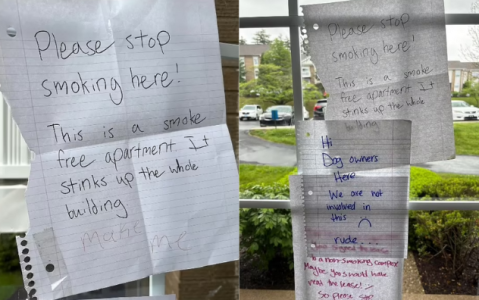 Please stop
smoking here!
This is a smoke
free apartment It
stinks up the whole
building
Make me
Please stop
smoking here!
This is a smoke
free apartment It
stinks up the whole
building
Hi
Dog owners
Here
We are not
involved in
this
rude....
is a non-smoking complex
Maybe you should have
read the lease!
so please stop